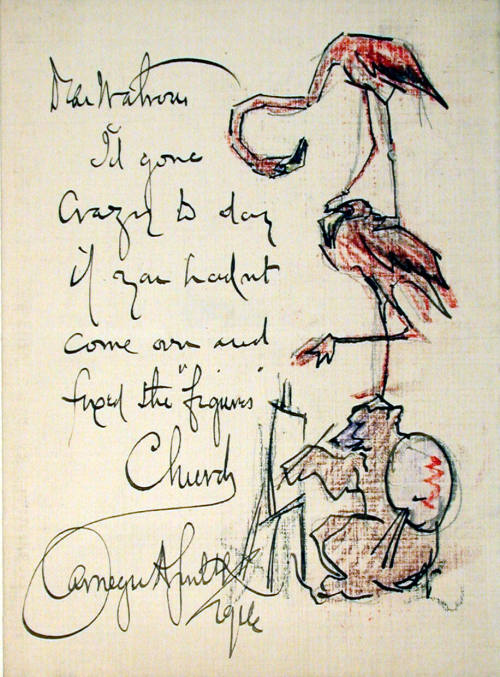 Dear Watrous
I'd gone
Crazy to day
if you hadnt
come over and
fixed the "figures"
Church
Carnegie
1914